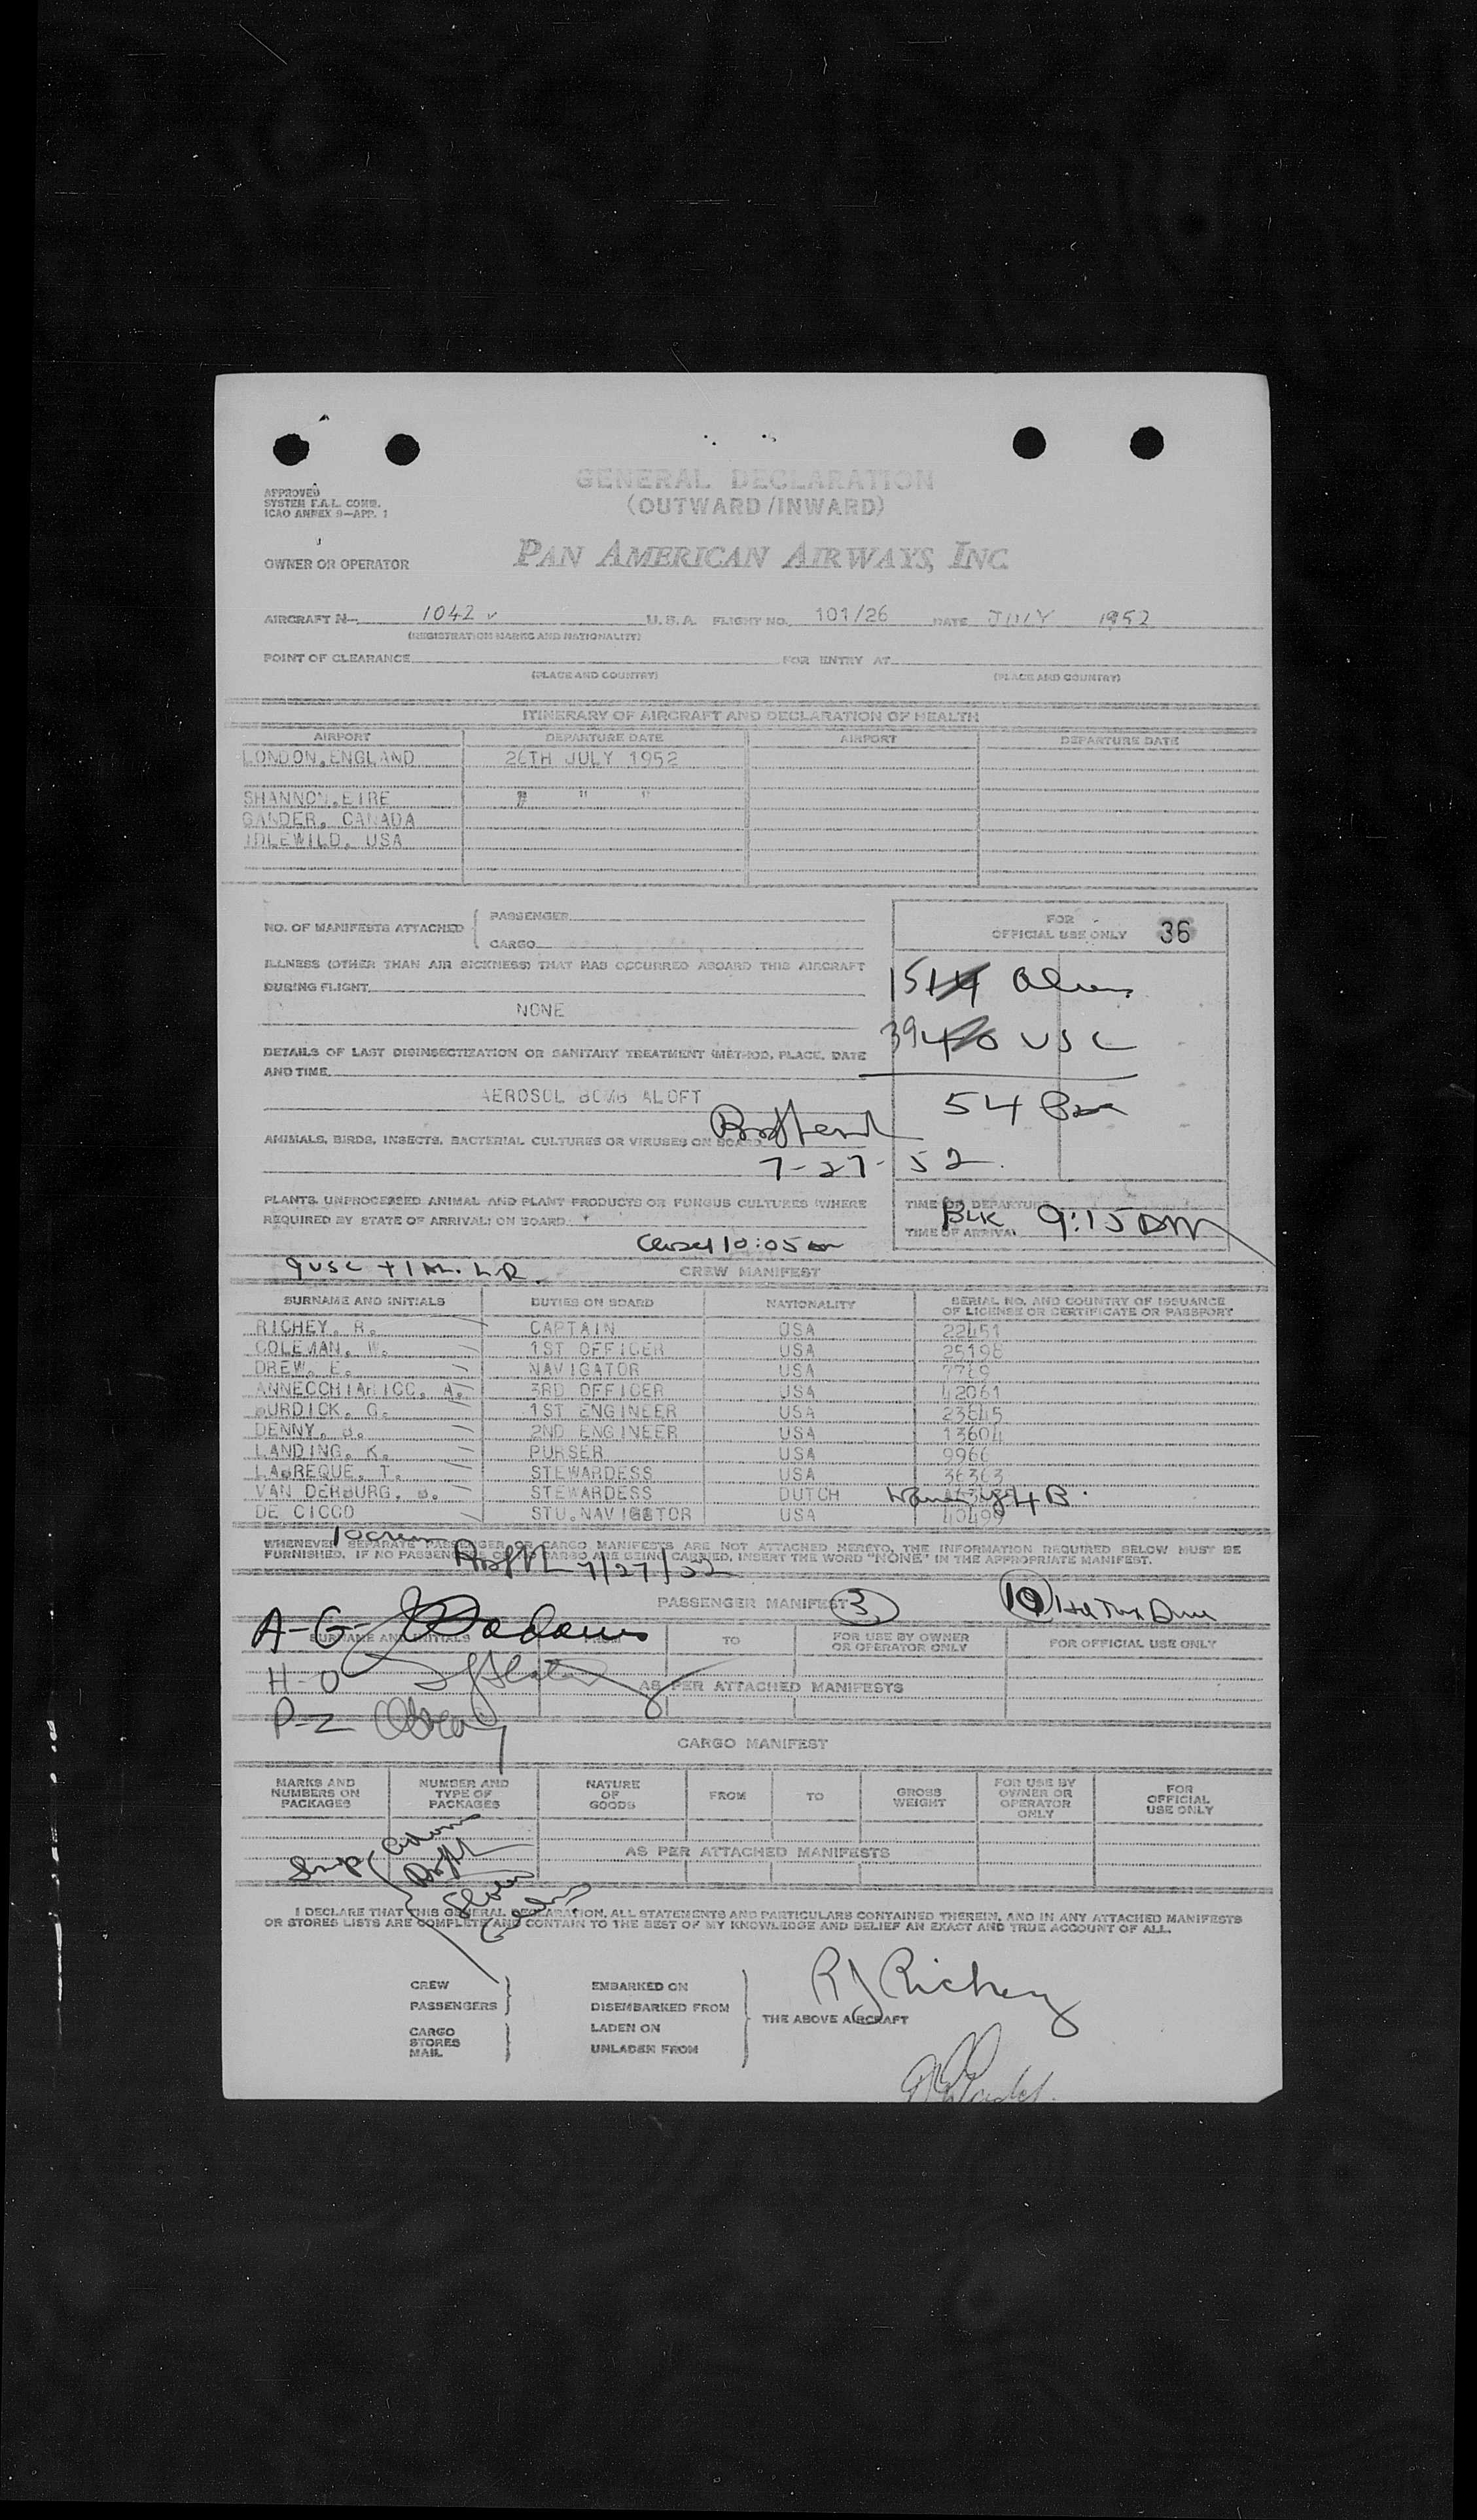 GENERAL DECLARATION
(OUTWARD/INWARD)
APPROVED
SYSTEM F.A.L. COMM.
ICAO ANNEX 9—APP. 1
OWNER OR OPERATOR PAN AMERICAN AIRWAYS, INC.
AIRCRAFT N— 1042 V U.S.A. FLIGHT NO. 101/26 DATE JULY 1952
(REGISTRATION MARKS AND NATIONALITY)
POINT OF CLEARANCE FOR ENTRY AT
(PLACE AND COUNTRY) (PLACE AND COUNTRY)
ITINERARY OF AIRCRAFT AND DECLARATION OF HEALTH
AIRPORT DEPARTURE DATE AIRPORT DEPARTURE DATE
LONDON, ENGLAND 26TH JULY 1952
SHANNON, EIRE " " "
GANDER, CANADA
IDLEWILD, USA
NO. OF MANIFESTS ATTACHED { PASSENGER
CARGO
FOR
OFFICIAL USE ONLY 36
ILLNESS (OTHER THAN AIR SICKNESS) THAT HAS OCCURRED ABOARD THIS AIRCRAFT
DURING FLIGHT
NONE
15 Aliens
39 USC
54 Pax
DETAILS OF LAST DISINSECTIZATION OR SANITARY TREATMENT (METHOD, PLACE, DATE
AND TIME
AEROSOL BOMB ALOFT
ANIMALS, BIRDS, INSECTS, BACTERIAL CULTURES OR VIRUSES ON BOARD
7-27-52
PLANTS, UNPROCESSED ANIMAL AND PLANT PRODUCTS OR FUNGUS CULTURES (WHERE
REQUIRED BY STATE OF ARRIVAL) ON BOARD
TIME OF DEPARTURE
BLK 9:15
TIME OF ARRIVAL
10:05
9 USC + 1
CREW MANIFEST
SURNAME AND INITIALS DUTIES ON BOARD NATIONALITY SERIAL NO. AND COUNTRY OF ISSUANCE
OF LICENSE OR CERTIFICATE OR PASSPORT
RICHEY, R. CAPTAIN USA 22451
COLEMAN, W. 1ST OFFICER USA 25198
DREW, E. NAVIGATOR USA 7769
ANNECCHIARICO, A. 3RD OFFICER USA 42061
BURDICK, G. 1ST ENGINEER USA 23645
DENNY, 2ND ENGINEER USA 13604
LANDING, K. PURSER USA 9966
LABREQUE, T. STEWARDESS USA 36363
VAN DERBURG, STEWARDESS DUTCH
DE CICCO STU.NAVIGATOR USA 40499
WHENEVER SEPARATE PASSENGER OR CARGO MANIFESTS ARE NOT ATTACHED HERETO, THE INFORMATION REQUIRED BELOW MUST BE
FURNISHED. IF NO PASSENGERS OR CARGO ARE BEING CARRIED, INSERT THE WORD "NONE" IN THE APPROPRIATE MANIFEST.
10 crew
7/27/52
PASSENGER MANIFEST 3 10
A-G Adams
SURNAME AND INITIALS FROM TO FOR USE BY OWNER
OR OPERATOR ONLY FOR OFFICIAL USE ONLY
H-O
AS PER ATTACHED MANIFESTS
P-Z
CARGO MANIFEST
MARKS AND
NUMBERS ON
PACKAGES
NUMBER AND
TYPE OF
PACKAGES
NATURE
OF
GOODS
FROM
TO
GROSS
WEIGHT
FOR USE BY
OWNER OR
OPERATOR
ONLY
FOR
OFFICIAL
USE ONLY
AS PER ATTACHED MANIFESTS
I DECLARE THAT THIS GENERAL DECLARATION, ALL STATEMENTS AND PARTICULARS CONTAINED THEREIN, AND IN ANY ATTACHED MANIFESTS
OR STORES LISTS ARE COMPLETE AND CONTAIN TO THE BEST OF MY KNOWLEDGE AND BELIEF AN EXACT AND TRUE ACCOUNT OF ALL.
R J Richey
CREW
PASSENGERS
CARGO
STORES
MAIL
EMBARKED ON
DISEMBARKED FROM
LADEN ON
UNLADEN FROM
THE ABOVE AIRCRAFT